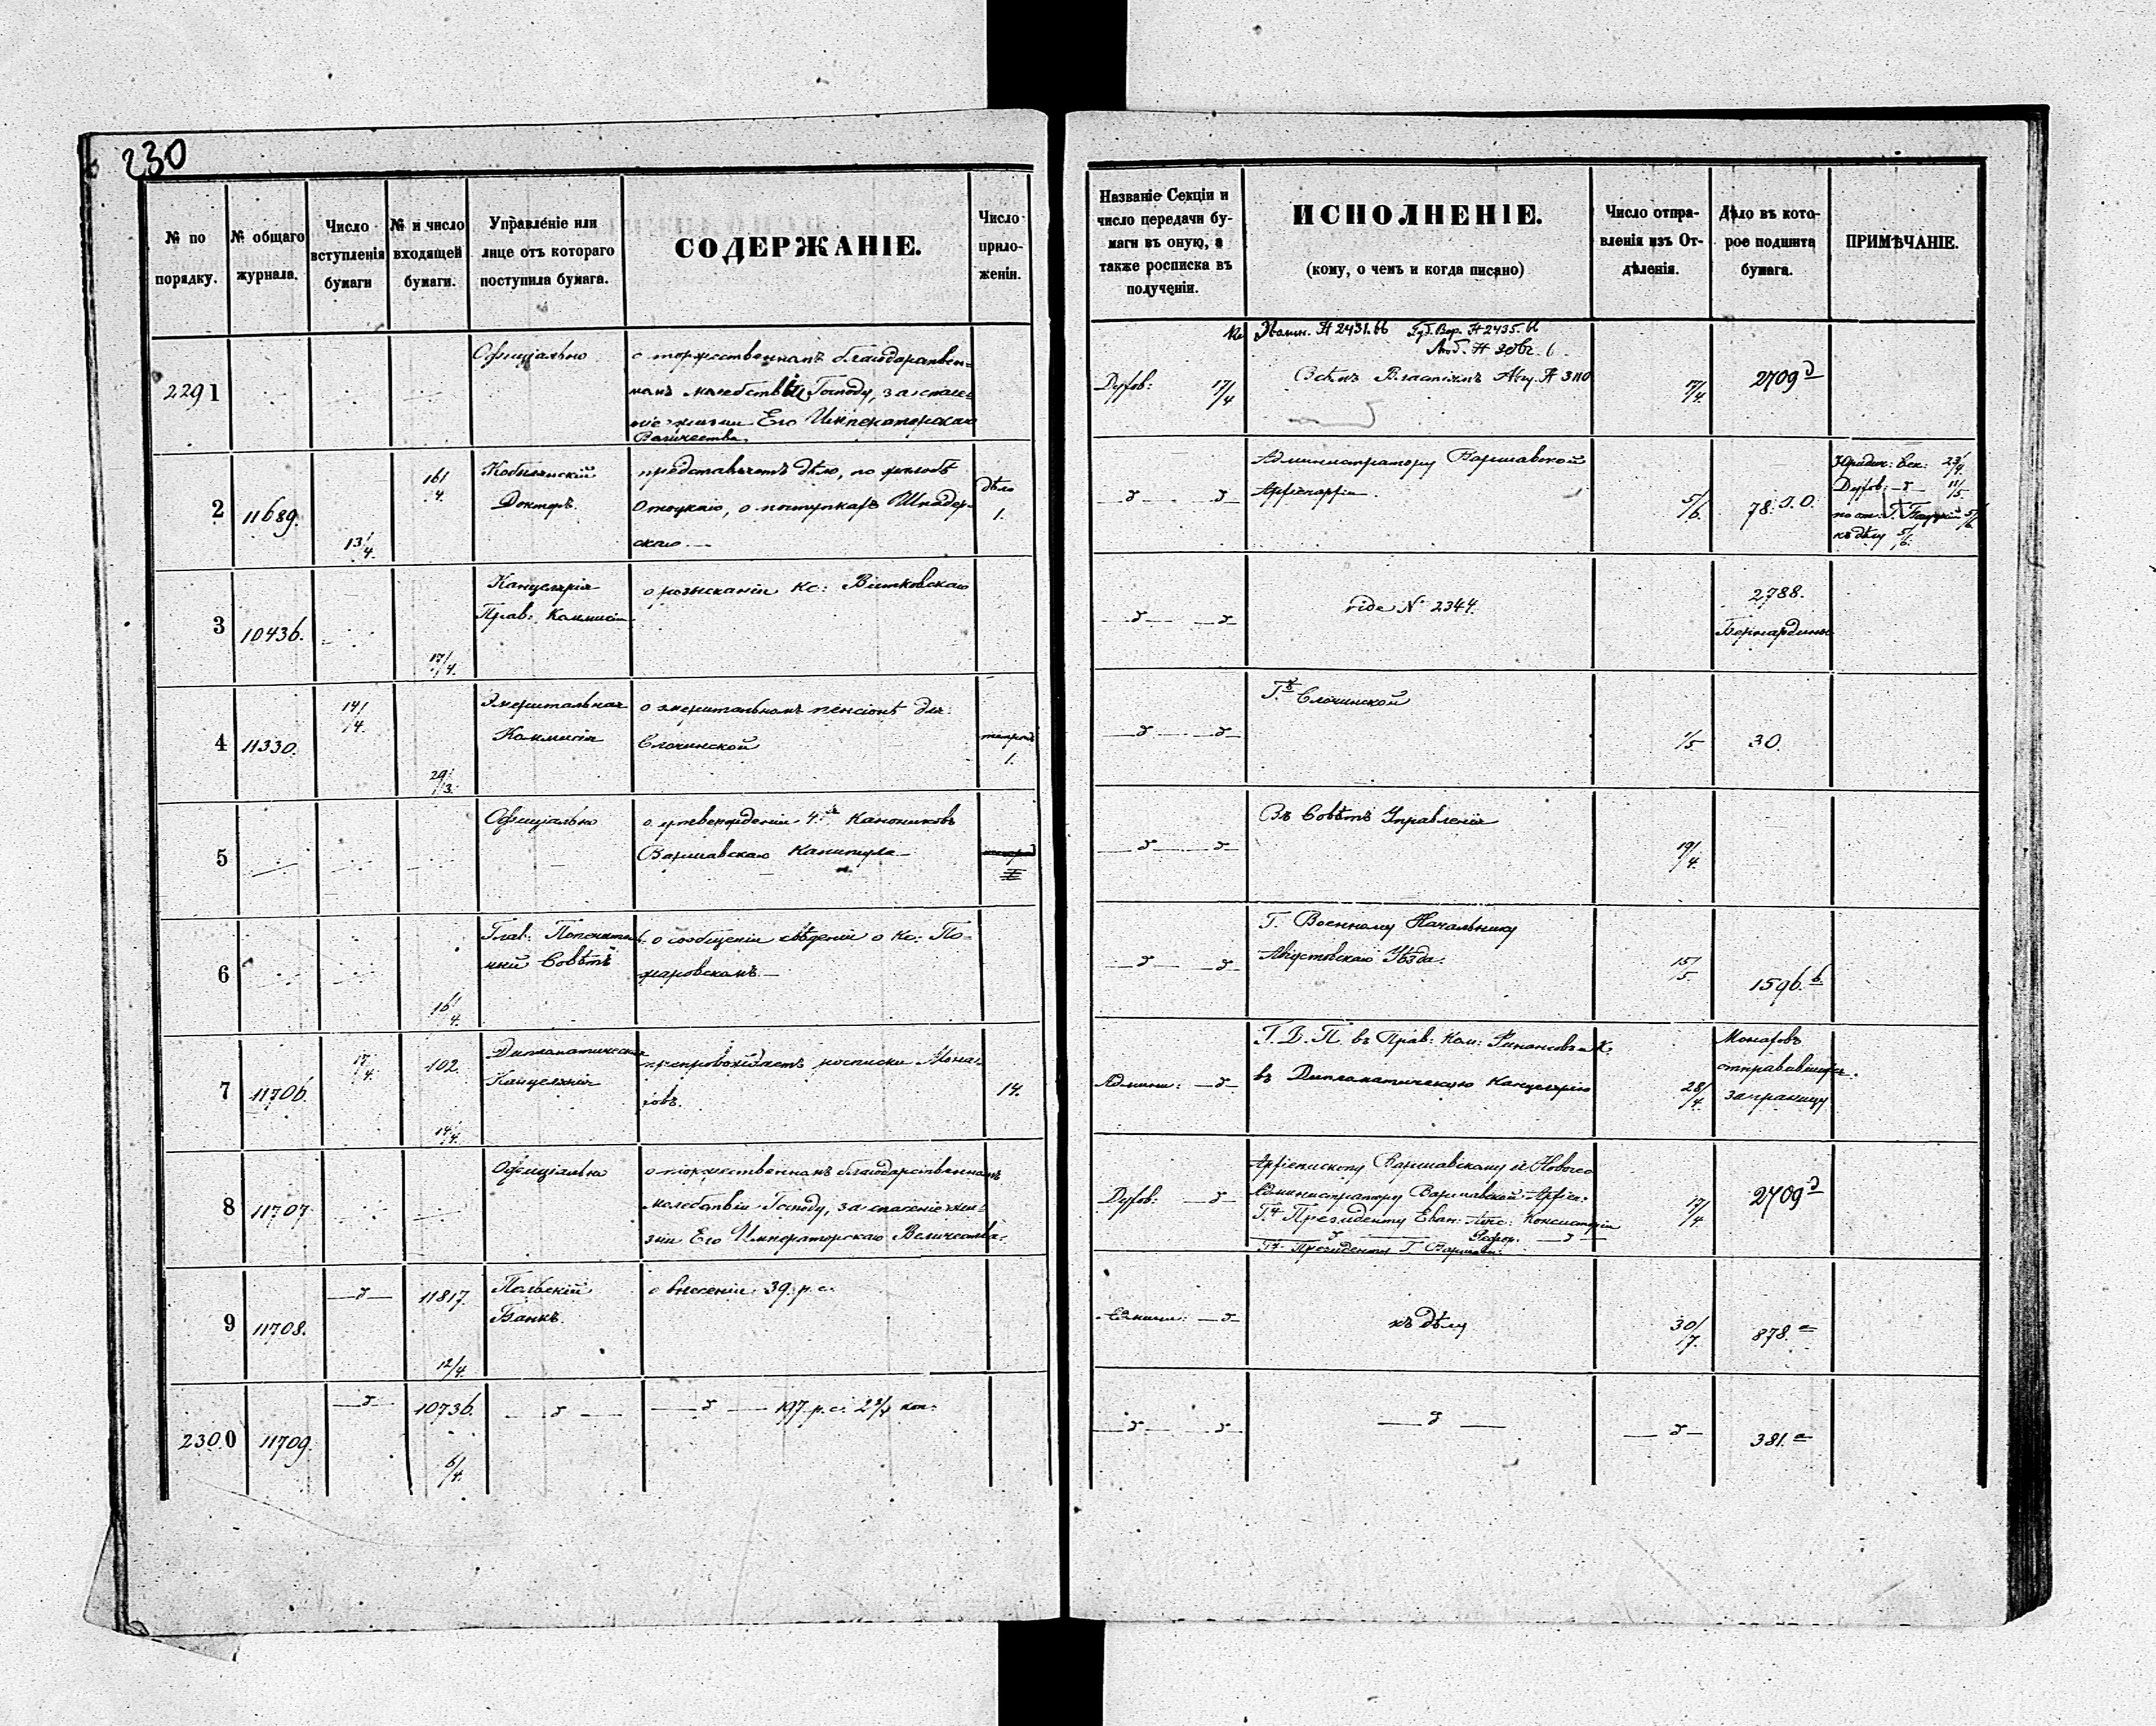 230
№ по порядку.
№ общаго журнала.
Число вступленія бумаги
№ и число входящей бумаги.
Управленіе или лице отъ котораго поступила бумага.
СОДЕРЖАНІЕ.
Число приложеній.
Названіе Секціи и число передачи бумаги въ оную, а также росписка въ полученіи.
ИСПОЛНЕНІЕ.
(кому, о чемъ и когда писано)
Число отправленія изъ Отдѣленія.
Дѣло въ которое подшита бумага.
ПРИМѢЧАНІЕ.
2291
Официально
о торжественномъ благодарствен-
номъ молебствіи Господу, за спасе-
ніе жизни Его Императорскаго
Величества.
Духов: 17/4
№ 2431.66 Губ. Вар. № 2435.66
Всѣмъ Властямъ № 3110
17/4
2709 д
2
11689.
13/4.
161
4.
Докторъ.
представляетъ дѣло, по жалобѣ
о поступкахъ
скаго
дѣло
1.
Администратору Варшавской
Архіепархіи.
5/6.
78. Э.О.
Юридич: Сек: 23/4.
Духов: 11/5
къ дѣлу 5/6.
3
10436.
17/4.
Канцелярія
Прав: Коммисіи
о розысканіи Кс: Витковскаго
vide N 2344.
2788.
Бернардины
4
11330.
14/4.
29/3.
Эмеритальная
Коммисія
о эмеритальномъ пенсіонѣ для
Слочинской
1.
Слочинской
1/5
30.
5
Официально
о утвержденіи 4хъ Канониковъ
Варшавскаго Капитула
Въ Совѣтъ Управленія
19/4.
6
16/4.
Глав: Попечитель-
ный Совѣтъ
о сообщеніи свѣденій о Кс: По-
жаровскомъ
Г. Военному Начальнику
Августовскаго Уѣзда.
15/5.
1596. б.
7
11706.
17/4.
102.
14/4.
Дипломатическая
Канцелярія
препровождаетъ росписки Мона-
ховъ.
14.
Админи: д
Г. Д. П. въ Прав: Ком: Финансовъ и К:
въ Дипломатическую Канцелярію
28/4.
Монаховъ
отправившихся
заграницу
8
11707
Официально
о торжественномъ благодарственномъ
молебствіи Господу, за спасеніе жи-
зни Его Императорскаго Величества.
Духов: д
Архіепископу Варшавскому и Новог.
Администратору Варшавской Архіеп:
Г. Президенту Еван: Авгс: Консисторіи
Рефор. д
Г. Президенту Г. Варшавы.
17/4
2709 д
9
11708.
д
11817.
12/4.
Польскій
Банкъ.
о внесеніи 39. р. с.
д
къ дѣлу
30/7.
878. а
2300
11709.
д
10736.
6/4.
д
д 197 р. с. 2 коп:
д д
д
д
381. а